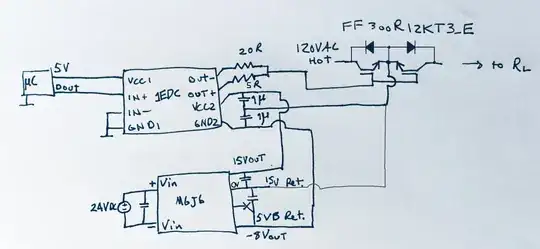 FF300R12KT3_E
20R
120VAC
HOT
5V
μC
Dout
VCC1
IN+
IN-
GND1
1EDC
OUT-
OUT+
VCC2
GND2
5R
1μ
1μ
→ to RL
15VOUT
24VDC
+ Vin
- Vin
M6J6
0V
15V Ret.
5VB Ret.
-8Vout